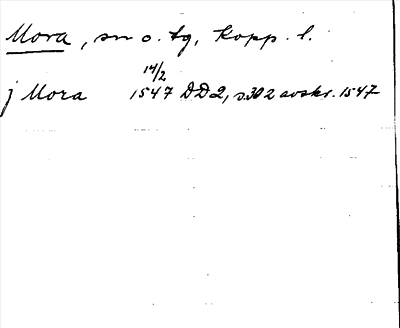 Mora, sn o. tg, Kopp. l.
14/2
j Mora 1547 DD2, s.302 avskr. 1547